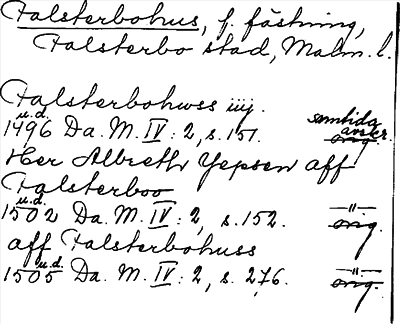 Falsterbohus, f. fästning,
Falsterbo stad, Malm. l.
Falsterbohuss iiij.
1496 u.d. Da. M. IV: 2, s. 151. samtida anter. orig.
Her Albreth Jepsen aff
Falsterboo
1502 u.d. Da. M. IV: 2, s. 152. —"— orig.
aff Falsterbohuss
1505 u.d. Da. M. IV: 2, s. 276. —"— orig.